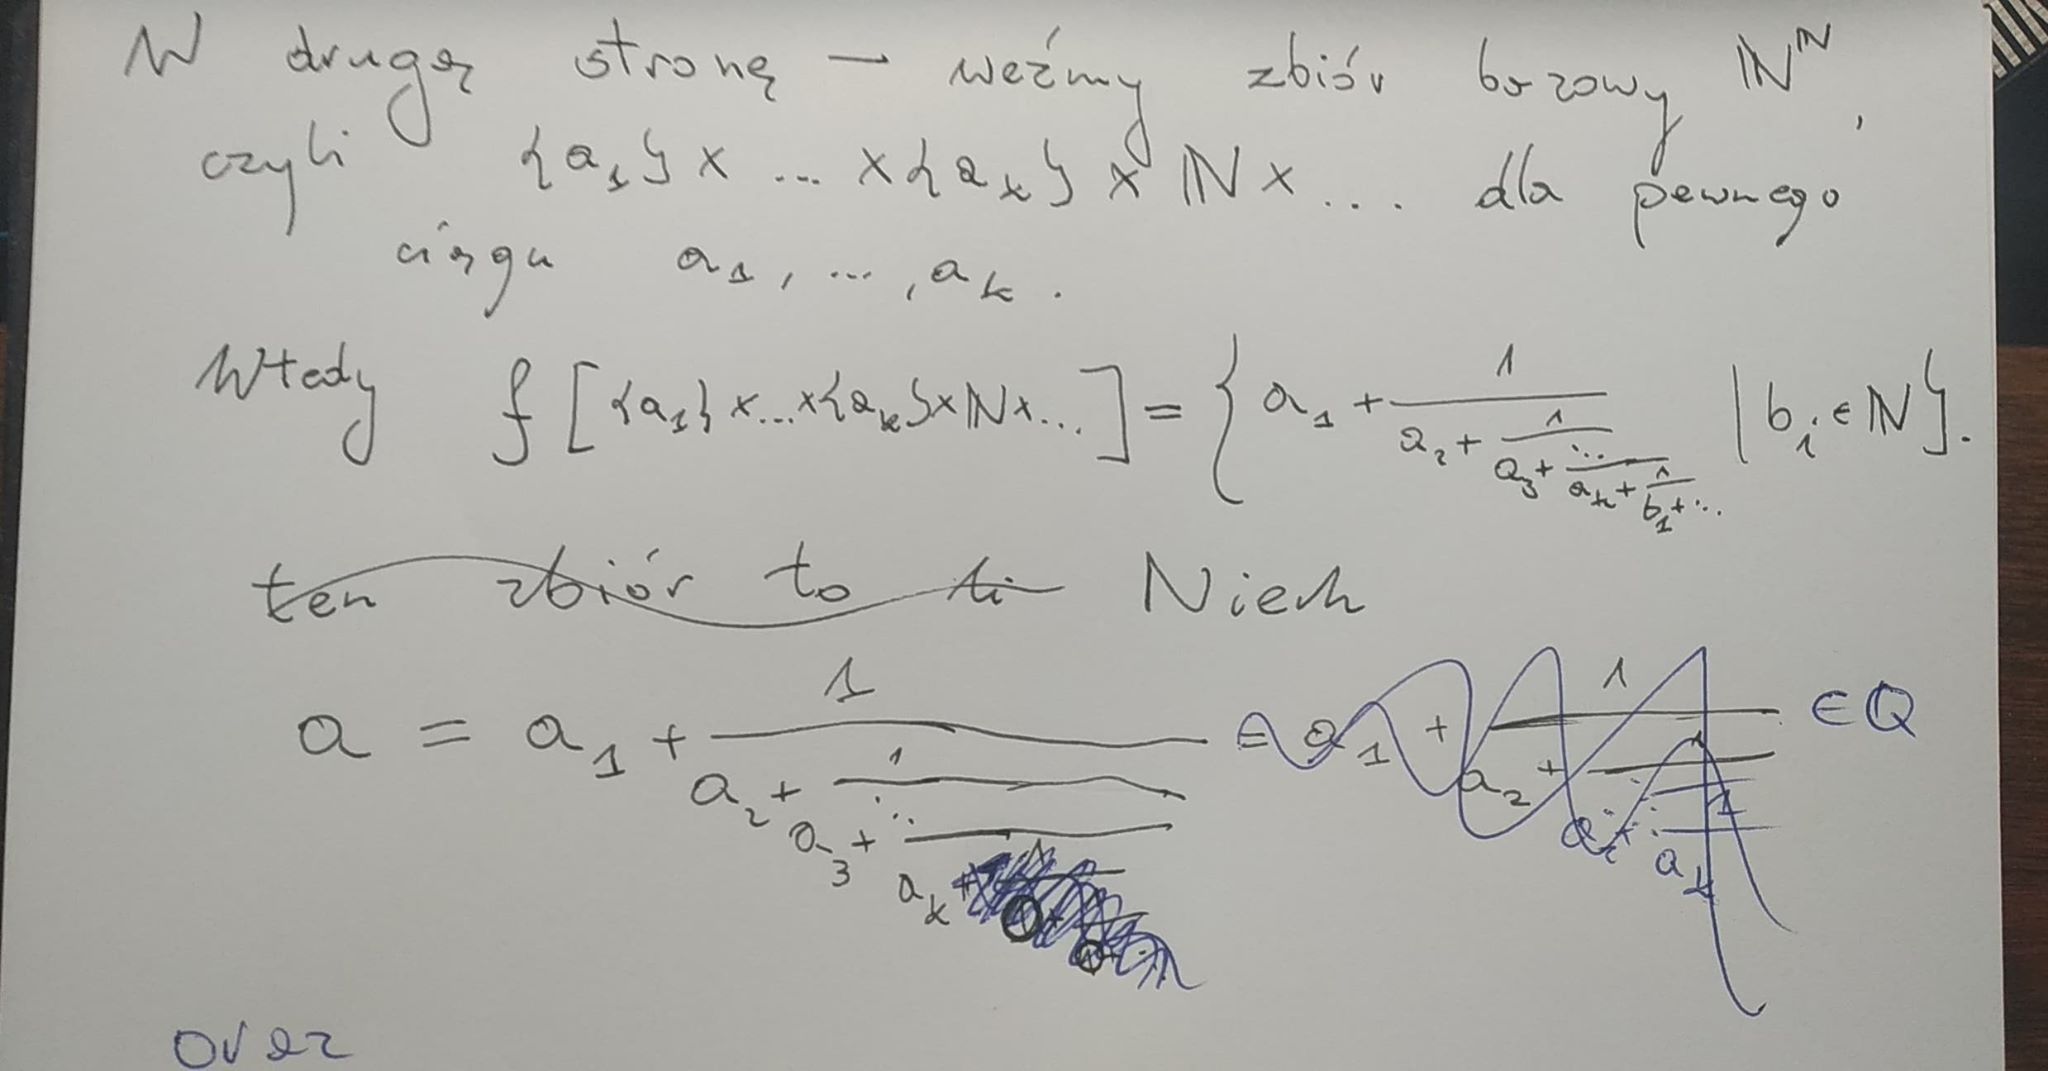 W drugą stronę – weźmy zbiór bazowy ℕ^ℕ,
czyli {a₁}×...×{aₖ}×ℕ×... dla pewnego
ciągu a₁, ..., aₖ.
Wtedy f[{a₁}×...×{aₖ}×ℕ×...] = {a₁ + 1/(a₂ + 1/(a₃ + .../(aₖ + 1/(b₁ + ...)))) | bᵢ ∈ ℕ}.
ten zbiór to Niech
a = a₁ + 1/(a₂ + 1/(a₃ + ... aₖ)) = a₁ + 1/(a₂ + ... aₖ) ∈ ℚ
oraz